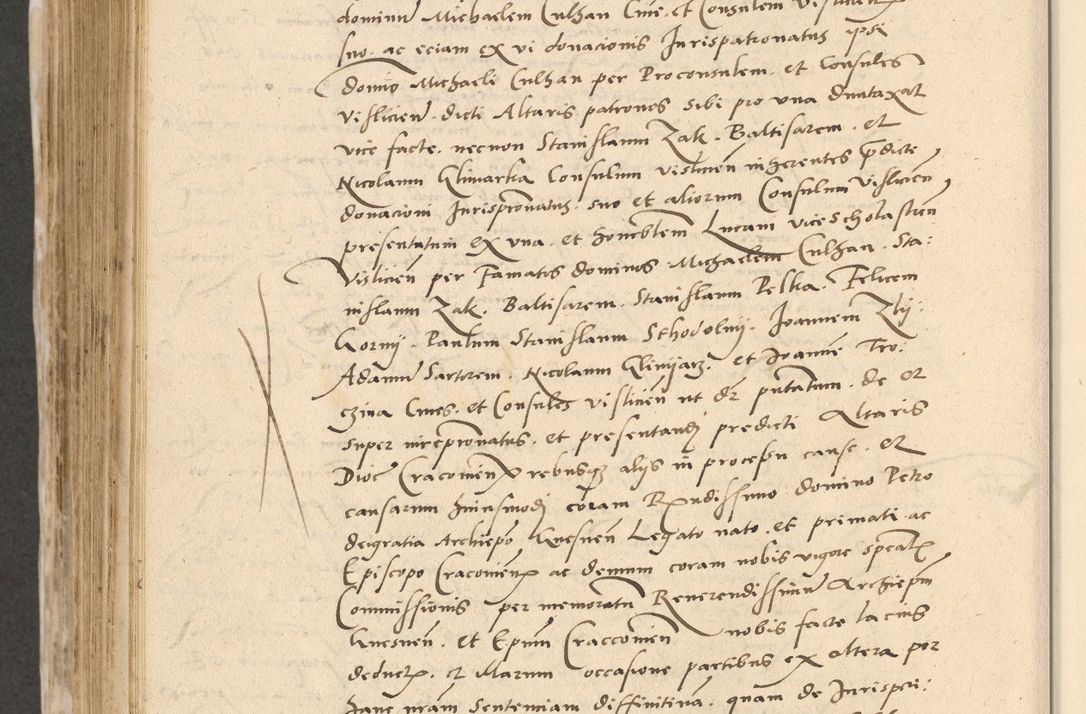 dominum Michaelem Culhan Cive. et Consulem Vislicien
suo. ac eciam ex vi donacionis Jurispatronatus ipsi
domino Michaeli Culhan per Proconsulem. et Consules
Vislicien. dicti Altaris patronos sibi pro una duntaxat
vice facte. necnon Stanislaum Zak. Baltisarem. et
Nicolaum Glinarka Consulum vislicien inherentes predicte
donacioni Jurispronatus. suo et aliorum Consulum Vislicien
presentatum ex una. et honorabilem Lucam vice scholasticum
Vislicien per Famatos dominos Michaelem Culhan. Sta:
nislaum Zak. Baltisarem. Stanislaum Pelka. Felicem
Gorny. Paulum Stanislaum Sthodolny. Joannem Zly.
Adamum Sartorem. Nicolaum Glinyarz. et Joannem Tro:
czina Cives. et Consules vislicien ut dr putatum. de et
super iurepronatus. et presentandi predicti Altaris
Dioc Cracovien rebusque alys in processu cause. et
causarum huiusmodi coram Rndissimo domino Petro
dei gratia Archiepo Gnesnen Legato nato. et primati. ac
Episcopo Cracovien ac demum coram nobis vigore specalis
Commissionis per memoratum Reverendissimum Archiepm
Gnesnen. et Epum Craccovien nobis facte lacius
deductis. et illarum occasione partibus ex altera per
hanc nram sentenciam diffinitivam. quam de Jurisperi: